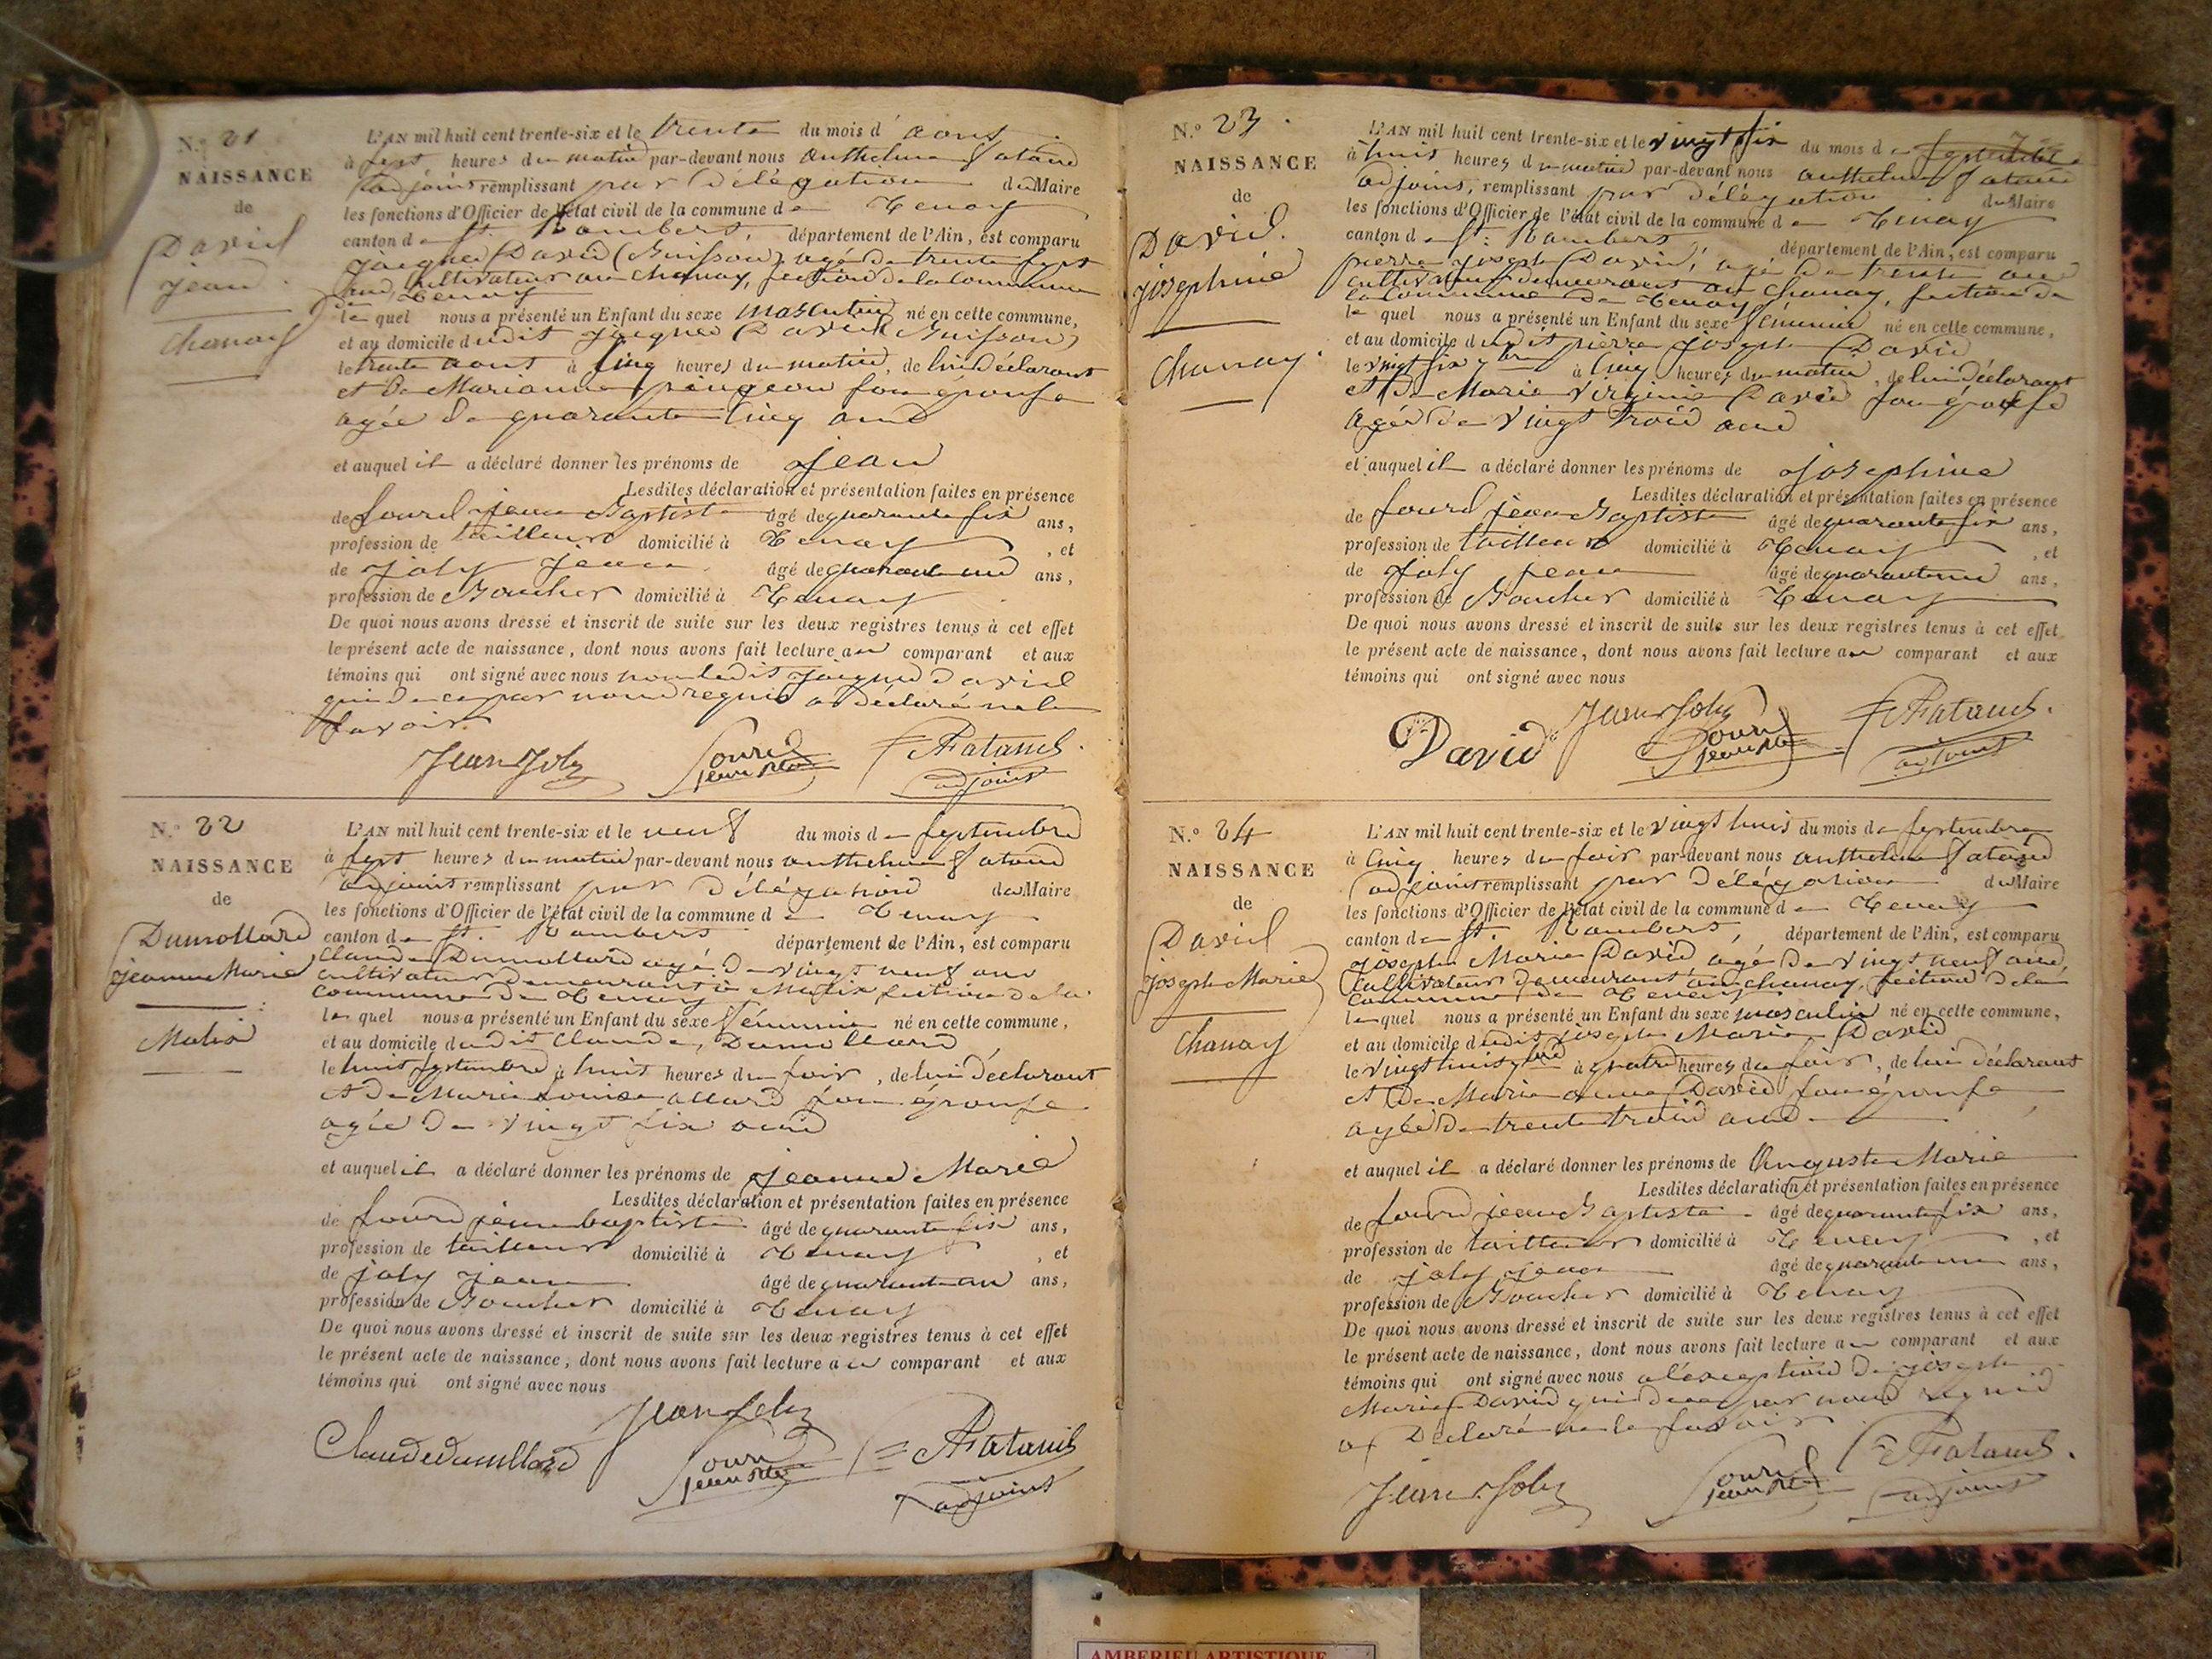 N.º 21
NAISSANCE
de
David
jean
Chanay
L'AN mil huit cent trente-six et le trente du mois d' aout
à sept heures du matin par-devant nous anthelme fatand
adjoint remplissant par délégation du Maire
les fonctions d'Officier de l'état civil de la commune de Tenay
canton de St. Rambert, département de l'Ain, est comparu
jacques David (Buisson) agé de trente sept
ans, Cultivateur au chanay, section de la Commune
de Tenay
le quel nous a présenté un Enfant du sexe masculin né en cette commune,
et au domicile dudit jacques David Buisson,
le trente aout à cinq heures du matin, de lui déclarant
et de Marianne pingeon son épouse
agée de quarante cinq ans
et auquel il a déclaré donner les prénoms de jean
Lesdites déclaration et présentation faites en présence
de fourd jean Baptiste âgé de quarante six ans,
profession de tailleur domicilié à Tenay, et
de joly jean âgé de quarante un ans,
profession de Boucher domicilié à Tenay
De quoi nous avons dressé et inscrit de suite sur les deux registres tenus à cet effet
le présent acte de naissance, dont nous avons fait lecture au comparant et aux
témoins qui ont signé avec nous non ledit jacques David
qui de ce par nous requis a déclaré ne le
savoir
Jean Joly fourd jean Bte AFatand
adjoint
N.º 22
NAISSANCE
de
Dumollard
jeanne Marie
Malix
L'AN mil huit cent trente-six et le neuf du mois de septembre
à sept heures du matin par-devant nous anthelme fatand
adjoint remplissant par délégation du Maire
les fonctions d'Officier de l'état civil de la commune de Tenay
canton de St. Rambert département de l'Ain, est comparu
Claude Dumollard agé de vingt neuf ans
cultivateur demeurant à Malix section de la
commune de Tenay
le quel nous a présenté un Enfant du sexe féminin né en cette commune,
et au domicile dudit Claude, Dumollard
le huit septembre à huit heures du soir, de lui déclarant
et de Marie Louise allard son épouse
agée de vingt six ans
et auquel il a déclaré donner les prénoms de jeanne Marie
Lesdites déclaration et présentation faites en présence
de fourd jean baptiste âgé de quarante six ans,
profession de tailleur domicilié à Tenay, et
de joly jean âgé de quarante un ans,
profession de Boucher domicilié à Tenay
De quoi nous avons dressé et inscrit de suite sur les deux registres tenus à cet effet
le présent acte de naissance, dont nous avons fait lecture au comparant et aux
témoins qui ont signé avec nous
Jean Joly
Claude dumllard fourd jean Bte AFatand
adjoint
N.º 23
NAISSANCE
de
David
josephine
Chanay
L'AN mil huit cent trente-six et le vingt six du mois de septembre
à huit heures du matin par-devant nous anthelme fatand
adjoint, remplissant par délégation du Maire
les fonctions d'Officier de l'état civil de la commune de Tenay
canton de St. Rambert, département de l'Ain, est comparu
pierre joseph David, agé de trente ans
cultivateur demeurant au Chanay, section de
la Commune de Tenay
le quel nous a présenté un Enfant du sexe féminin né en cette commune,
et au domicile dudit pierre joseph David
le vingt six 7bre à cinq heures du matin, de lui déclarant
et de Marie Virginie David son épouse
agée de vingt trois ans
et auquel il a déclaré donner les prénoms de josephine
Lesdites déclaration et présentation faites en présence
de fourd jean Baptiste âgé de quarante six ans,
profession de tailleur domicilié à Tenay, et
de joly jean âgé de quarante un ans,
profession de Boucher domicilié à Tenay
De quoi nous avons dressé et inscrit de suite sur les deux registres tenus à cet effet
le présent acte de naissance, dont nous avons fait lecture au comparant et aux
témoins qui ont signé avec nous
David Jean Joly fourd jean Bte AFatand
adjoint
N.º 24
NAISSANCE
de
David
joseph Marie
Chanay
L'AN mil huit cent trente-six et le vingt huit du mois de septembre
à cinq heures du soir par-devant nous anthelme fatand
adjoint remplissant par délégation du Maire
les fonctions d'Officier de l'état civil de la commune de Tenay
canton de St. Rambert, département de l'Ain, est comparu
joseph Marie David agé de vingt neuf ans,
Cultivateur demeurant au chanay, section de la
commune de Tenay
le quel nous a présenté un Enfant du sexe masculin né en cette commune,
et au domicile dudit joseph Marie David
le vingt huit 7bre à quatre heures du soir, de lui déclarant
et de Marie anne David son épouse
agée de trente trois ans
et auquel il a déclaré donner les prénoms de Auguste Marie
Lesdites déclaration et présentation faites en présence
de fourd jean Baptiste âgé de quarante six ans,
profession de tailleur domicilié à Tenay, et
de joly jean âgé de quarante un ans,
profession de Boucher domicilié à Tenay
De quoi nous avons dressé et inscrit de suite sur les deux registres tenus à cet effet
le présent acte de naissance, dont nous avons fait lecture au comparant et aux
témoins qui ont signé avec nous a l'exception de joseph
Marie David qui de ce par nous requis
a Déclaré ne le savoir
Jean Joly fourd jean Bte AFatand
adjoint
AMBERIEU ARTISTIQUE